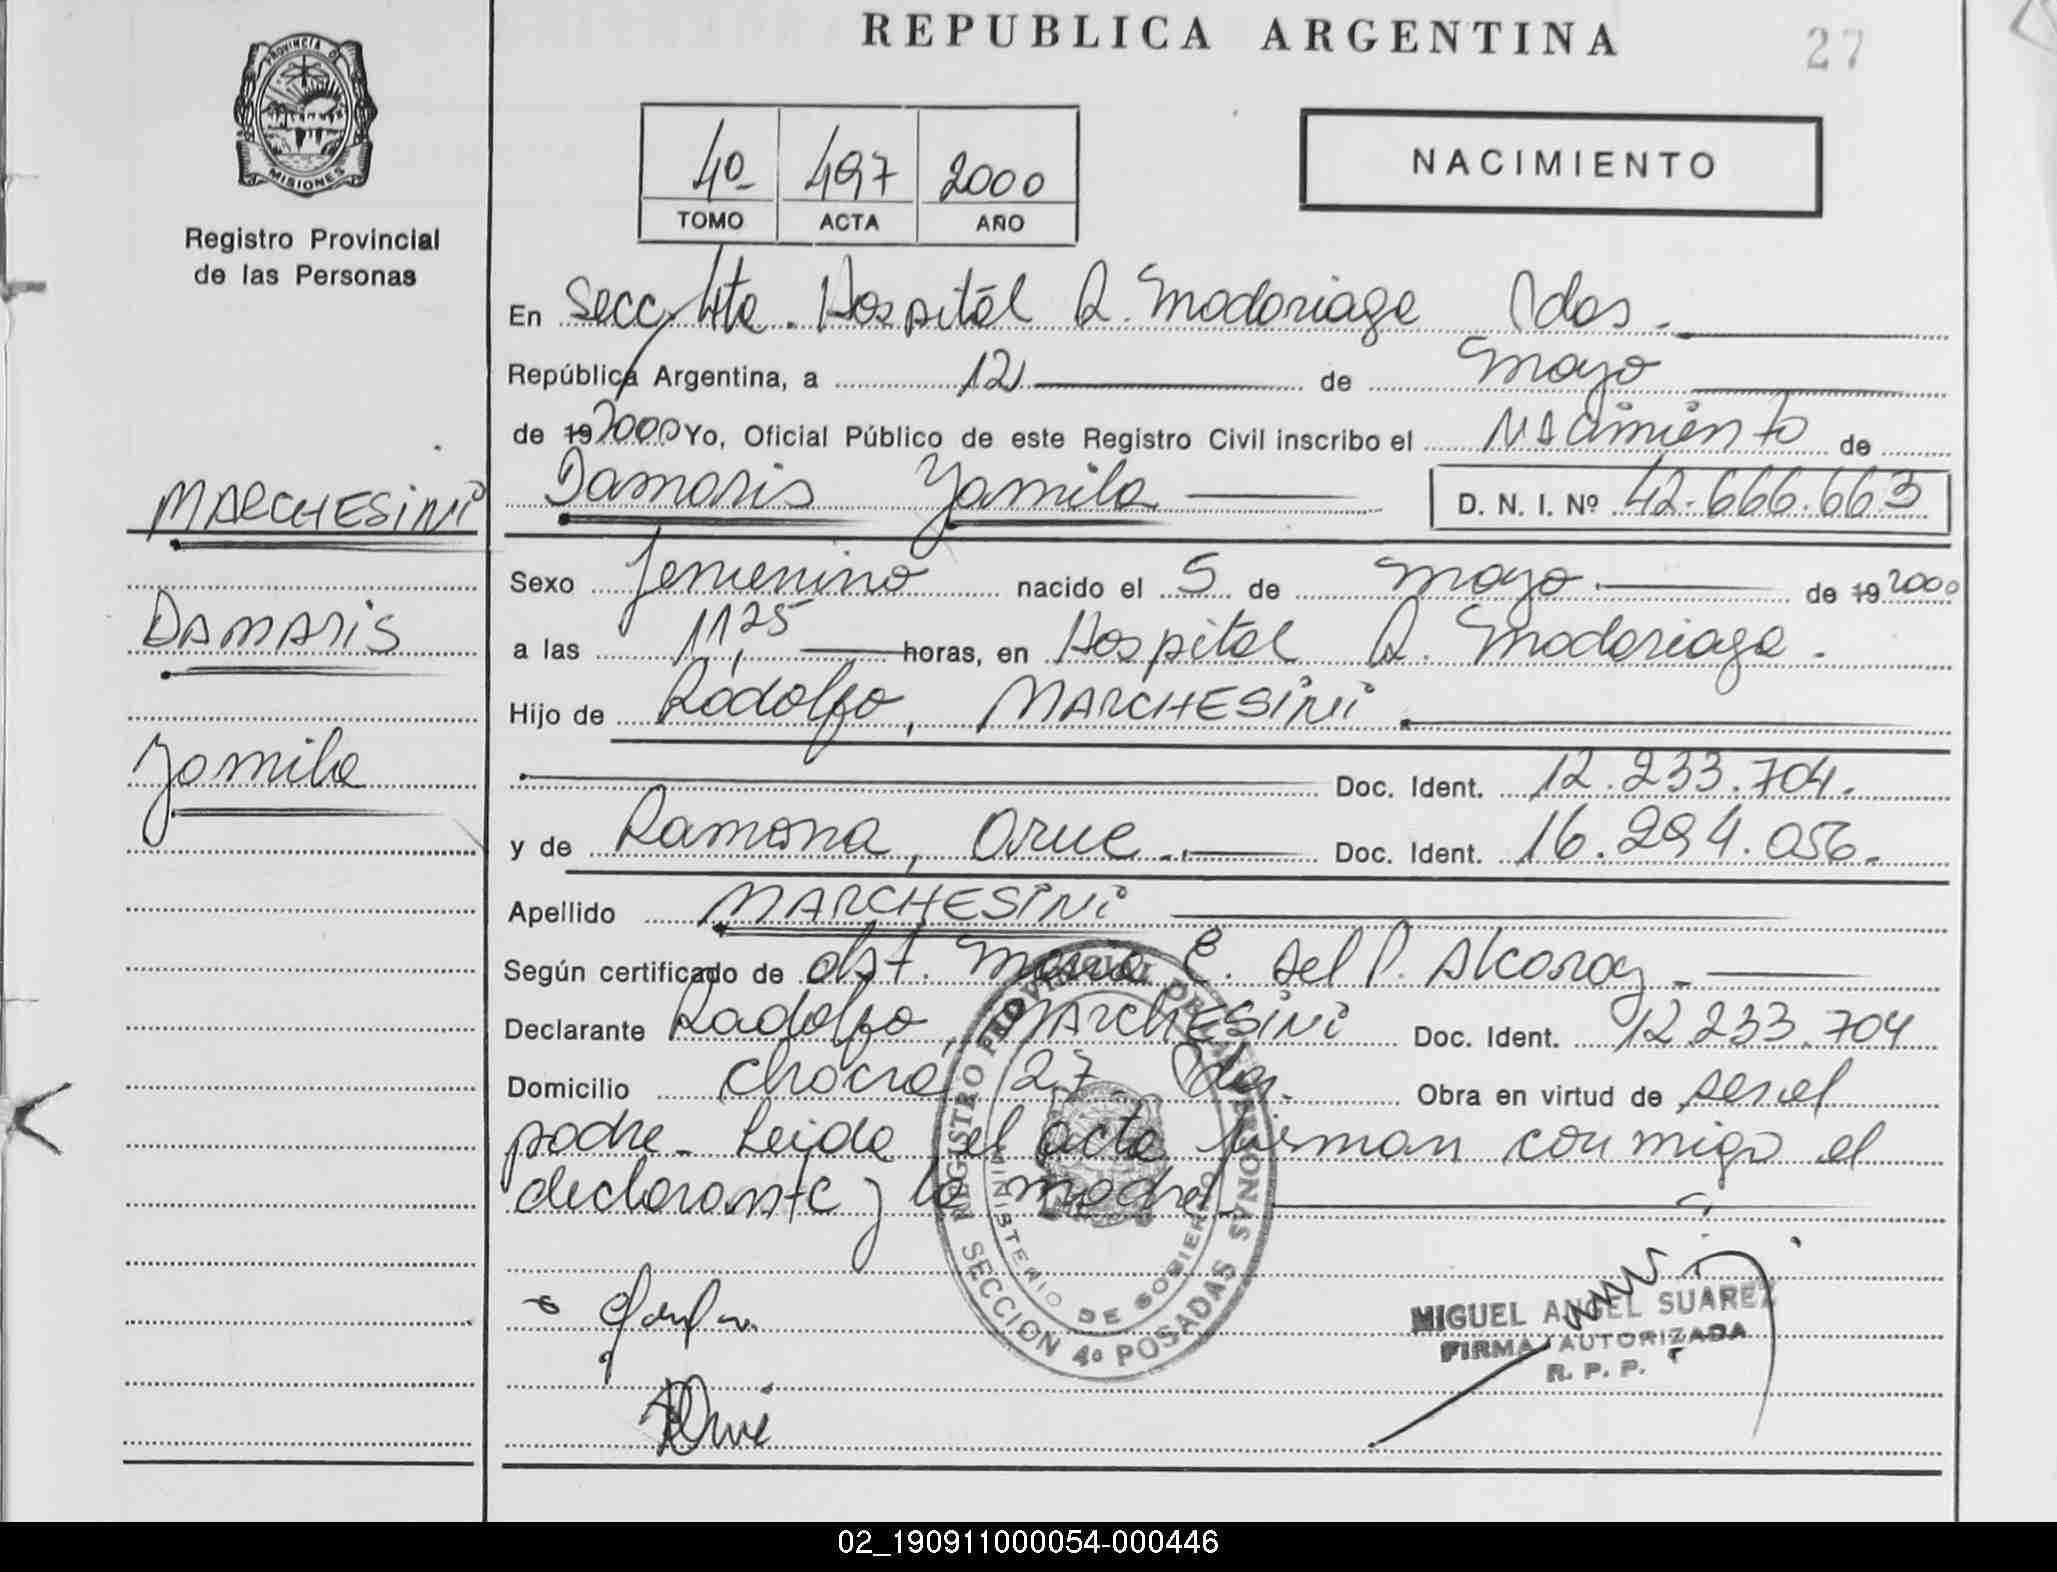 REPUBLICA ARGENTINA
27
PROVINCIA DE
MISIONES
Registro Provincial
de las Personas
4º 497 2000
TOMO ACTA AÑO
NACIMIENTO
En Secc. 4ta. Hospital R. Madariaga Pdas.
República Argentina, a 12 de Mayo
de 19 2000 Yo, Oficial Público de este Registro Civil inscribo el Nacimiento de
Damaris Yamila D. N. I. Nº 42.666.663
MARCHESINI
Sexo femenino nacido el 5 de mayo de 19 2000
DAMARIS
a las 11,25 horas, en Hospital R. Madariaga.
Hijo de Rodolfo, MARCHESINI
Yamila
Doc. Ident. 12.233.704.
y de Ramona, Orue Doc. Ident. 16.294.056.
Apellido MARCHESINI
Según certificado de obst. Maria E. del P. Alcaraz
Declarante Rodolfo, MARCHESINI Doc. Ident. 12.233.704
Domicilio chacra 27 Pdas. Obra en virtud de ser el
padre. Leida el acta firman conmigo el
declarante y la madre
REGISTRO PROVINCIAL DE LAS PERSONAS
MINISTERIO DE GOBIERNO
SECCION 4º POSADAS
MIGUEL ANGEL SUAREZ
FIRMA AUTORIZADA
R. P. P.
ROrue
02_190911000054-000446